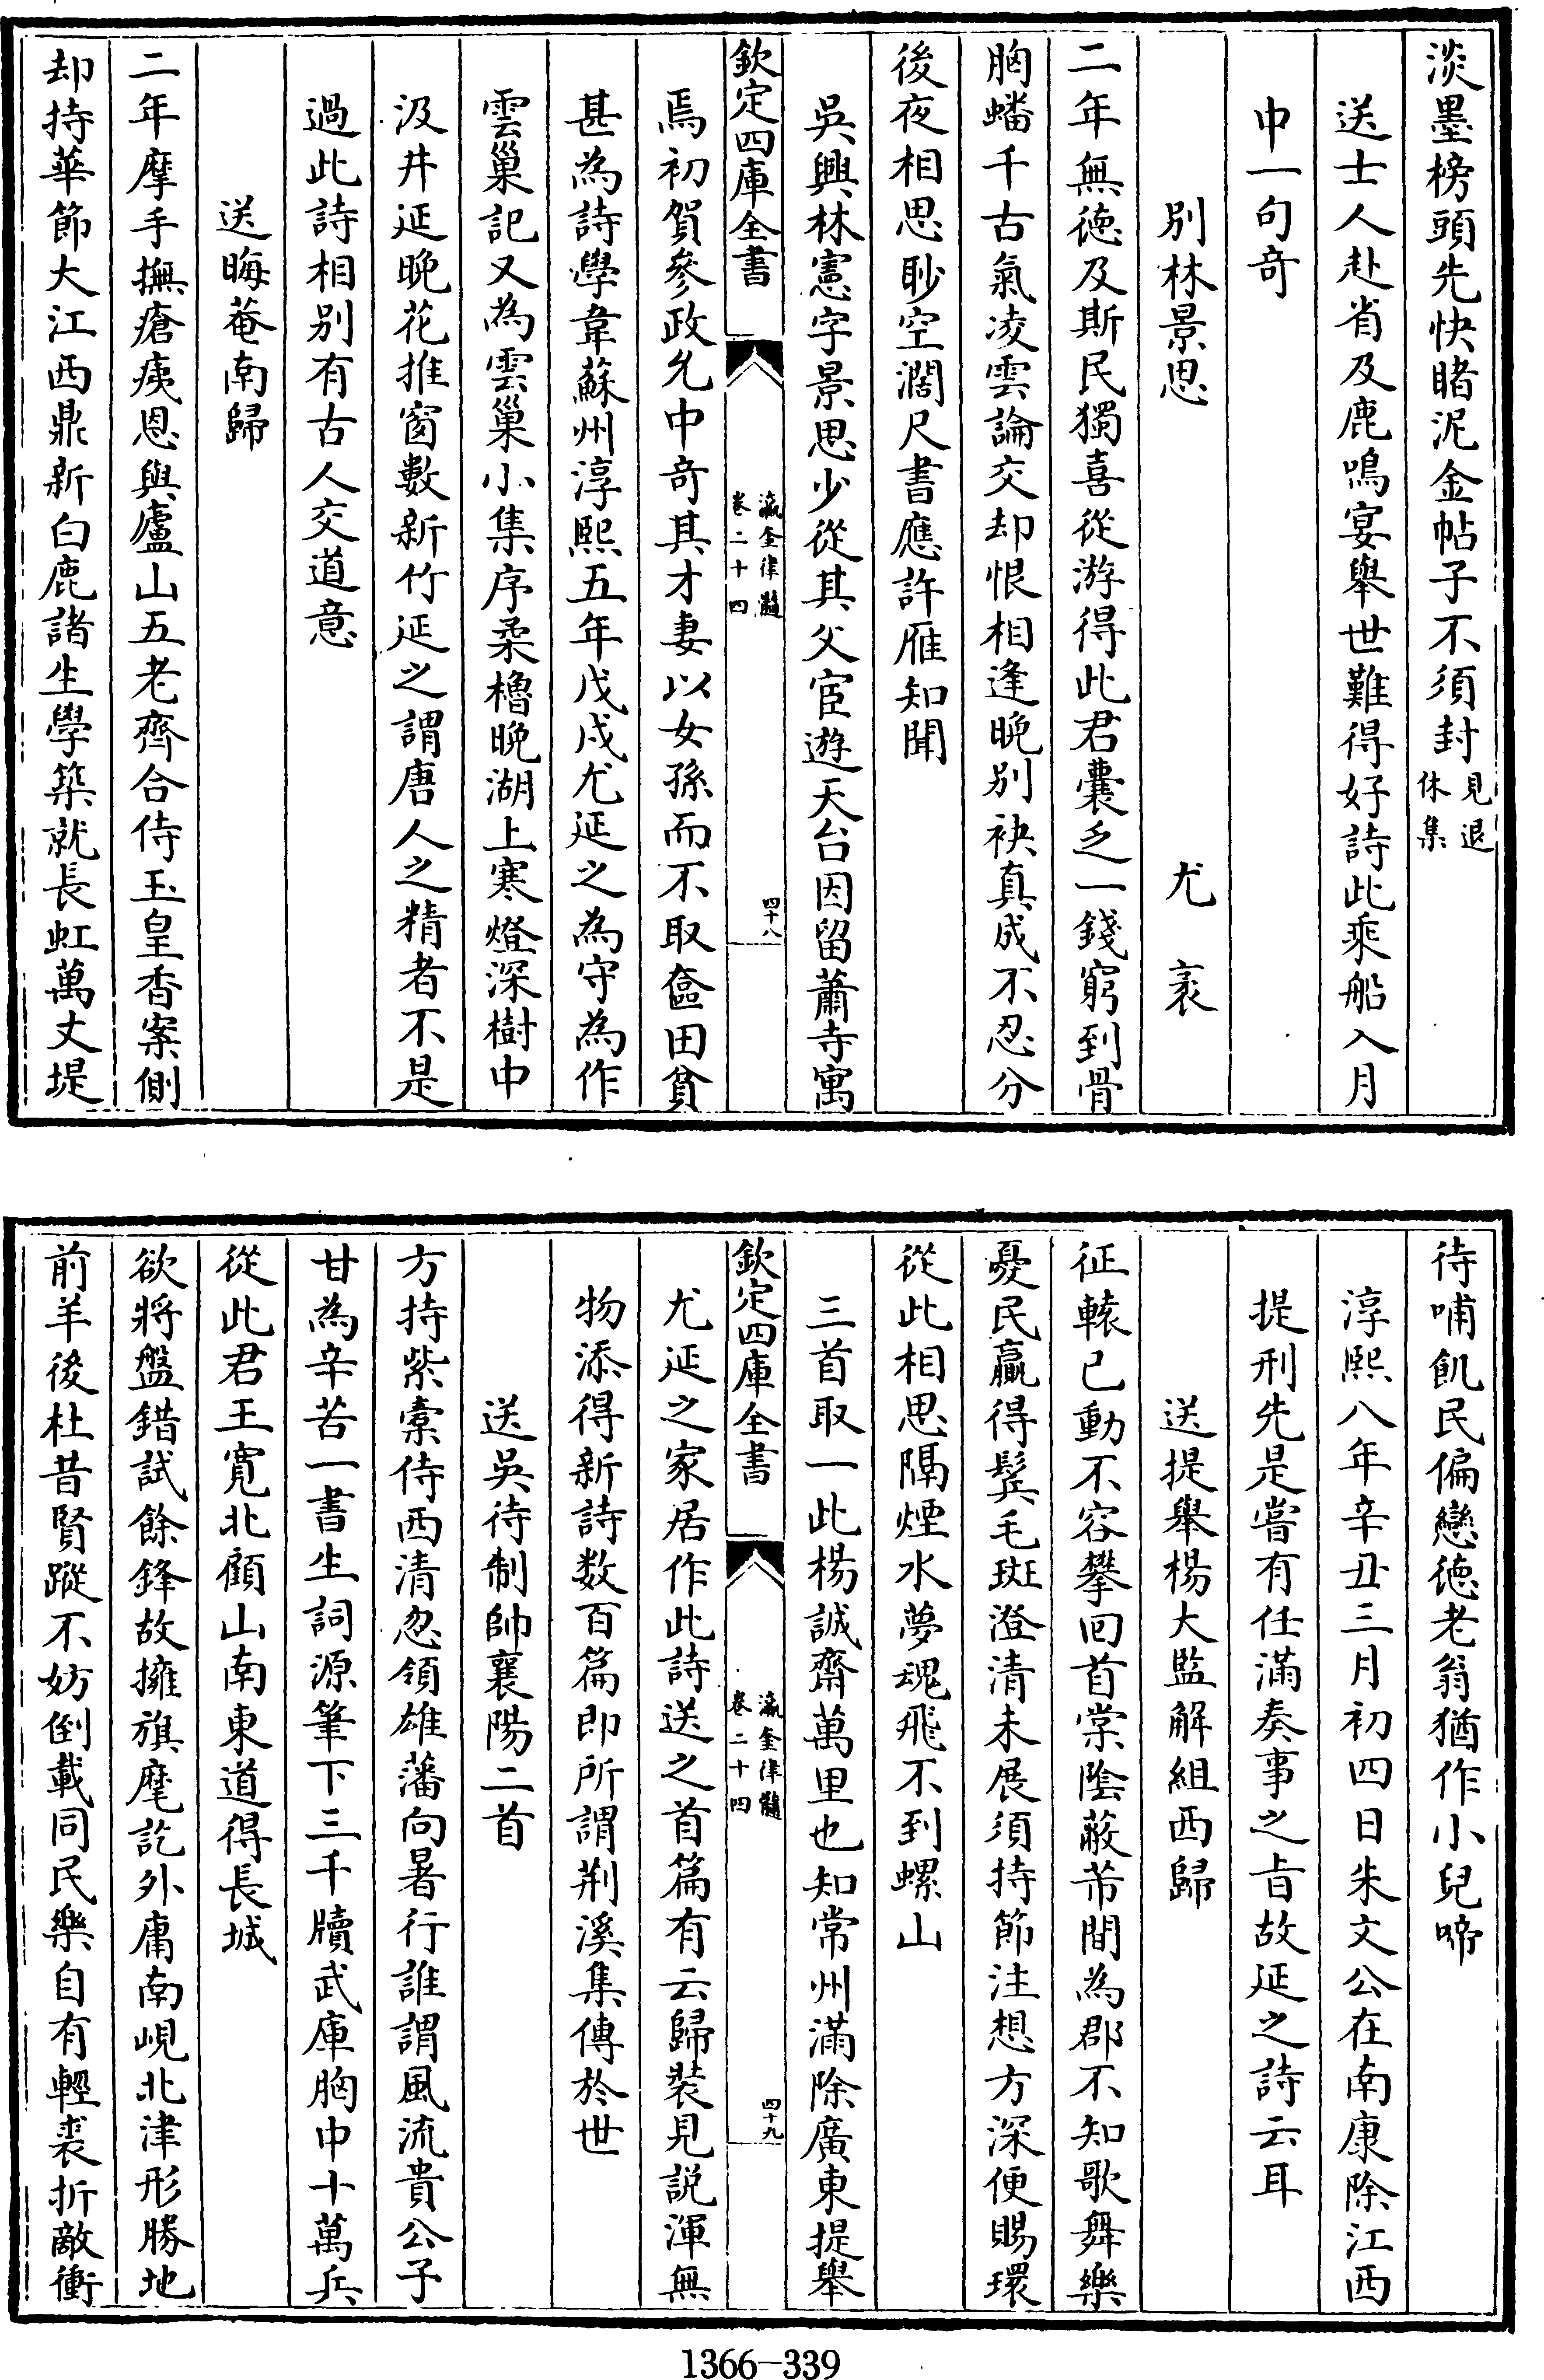 淡墨榜頭先快睹泥金帖子不須封見退休集
送士人赴省及鹿鳴宴舉世難得好詩此乘船入月
中一句奇
別林景思　尤袤
二年無徳及斯民獨喜從游得此君囊乏一錢窮到骨
胸蟠千古氣凌雲論交却恨相逢晩别袂真成不忍分
後夜相思眇空濶尺書應許雁知聞
吳興林憲字景思少從其父宦遊天台因留蕭寺寓
欽定四庫全書　瀛奎律髓卷二十四　四十八
焉初賀參政允中奇其才妻以女孫而不取奩田貧
甚為詩學韋蘇州淳熙五年戊戌尤延之為守為作
雲巢記又為雲巢小集序柔櫓晚湖上寒燈深樹中
汲井延晚花推窗數新竹延之謂唐人之精者不是
過此詩相别有古人交道意
送晦菴南歸
二年摩手撫瘡痍恩與廬山五老齊合侍玉皇香案側
却持華節大江西鼎新白鹿諸生學築就長虹萬丈堤
待哺飢民偏戀徳老翁猶作小兒啼
淳熙八年辛丑三月初四日朱文公在南康除江西
提刑先是嘗有任滿奏事之㫖故延之詩云耳
送提舉楊大監解組西歸
征轅已動不容攀回首棠隂蔽芾間為郡不知歌舞樂
憂民贏得鬂毛斑澄清未展須持節注想方深便賜環
從此相思隔煙水夢魂飛不到螺山
三首取一此楊誠齋萬里也知常州滿除廣東提舉
欽定四庫全書　瀛奎律髓卷二十四　四十九
尤延之家居作此詩送之首篇有云歸裝見説渾無
物添得新詩数百篇即所謂荆溪集傳於世
送吳待制帥襄陽二首
方持紫橐侍西清忽領雄藩向暑行誰謂風流貴公子
甘為辛苦一書生詞源筆下三千牘武庫胸中十萬兵
從此君王寛北顧山南東道得長城
欲將盤錯試餘鋒故擁旗麾訖外庸南峴北津形勝地
前羊後杜昔賢蹤不妨倒載同民樂自有輕裘折敵衝
1366—339